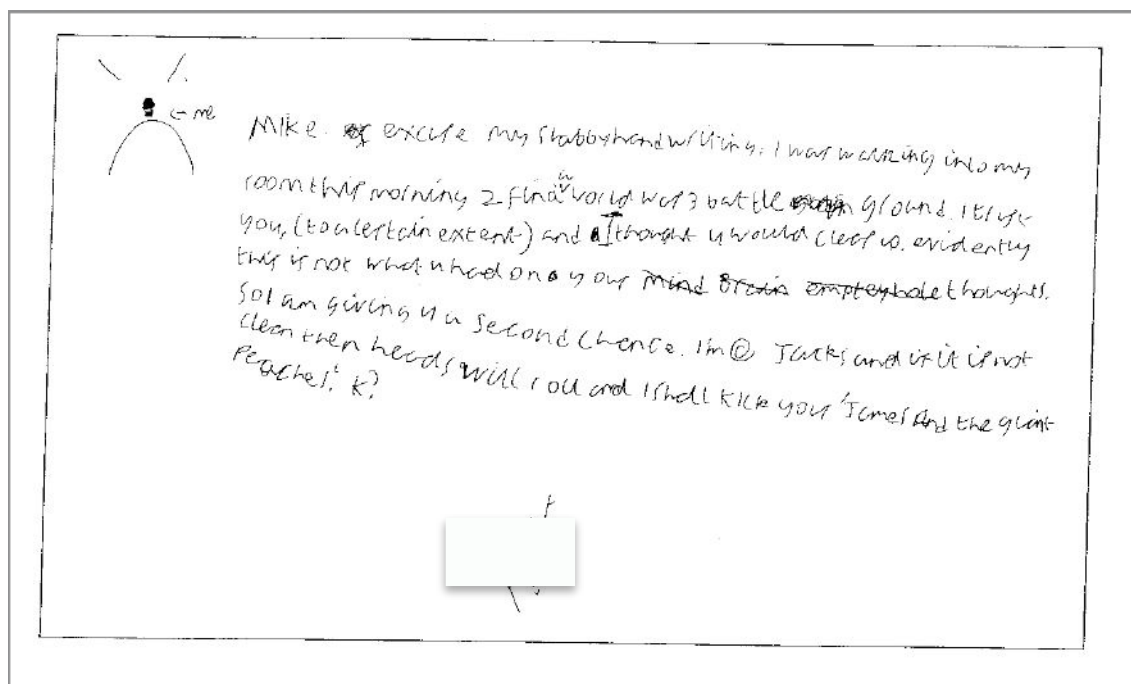 ← me
Mike. excuse my shabby handwriting. I was walking into my
room this morning 2 find a world war 3 battle ground. I trust
you, (to a certain extent) and I thought u would clear up. evidently
this is not what u had on your mind brain emptey hole thoughts.
So I am giving u a second chance. I'm @ Jacks and if it is not
clean then heads will roll and I shall kick your 'James And the giant
peaches'. K?